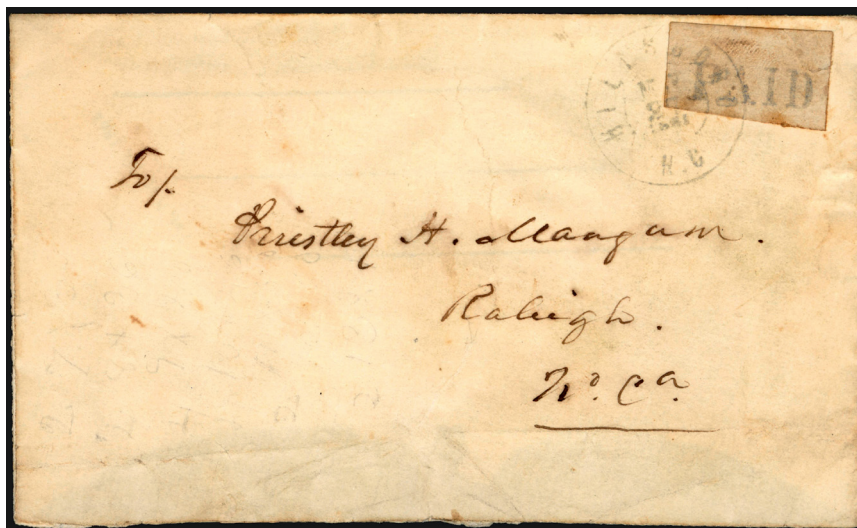 HILLSBORO
N.C
PAID
To/.
Priestley H. Mangum.
Raleigh.
No. Ca.